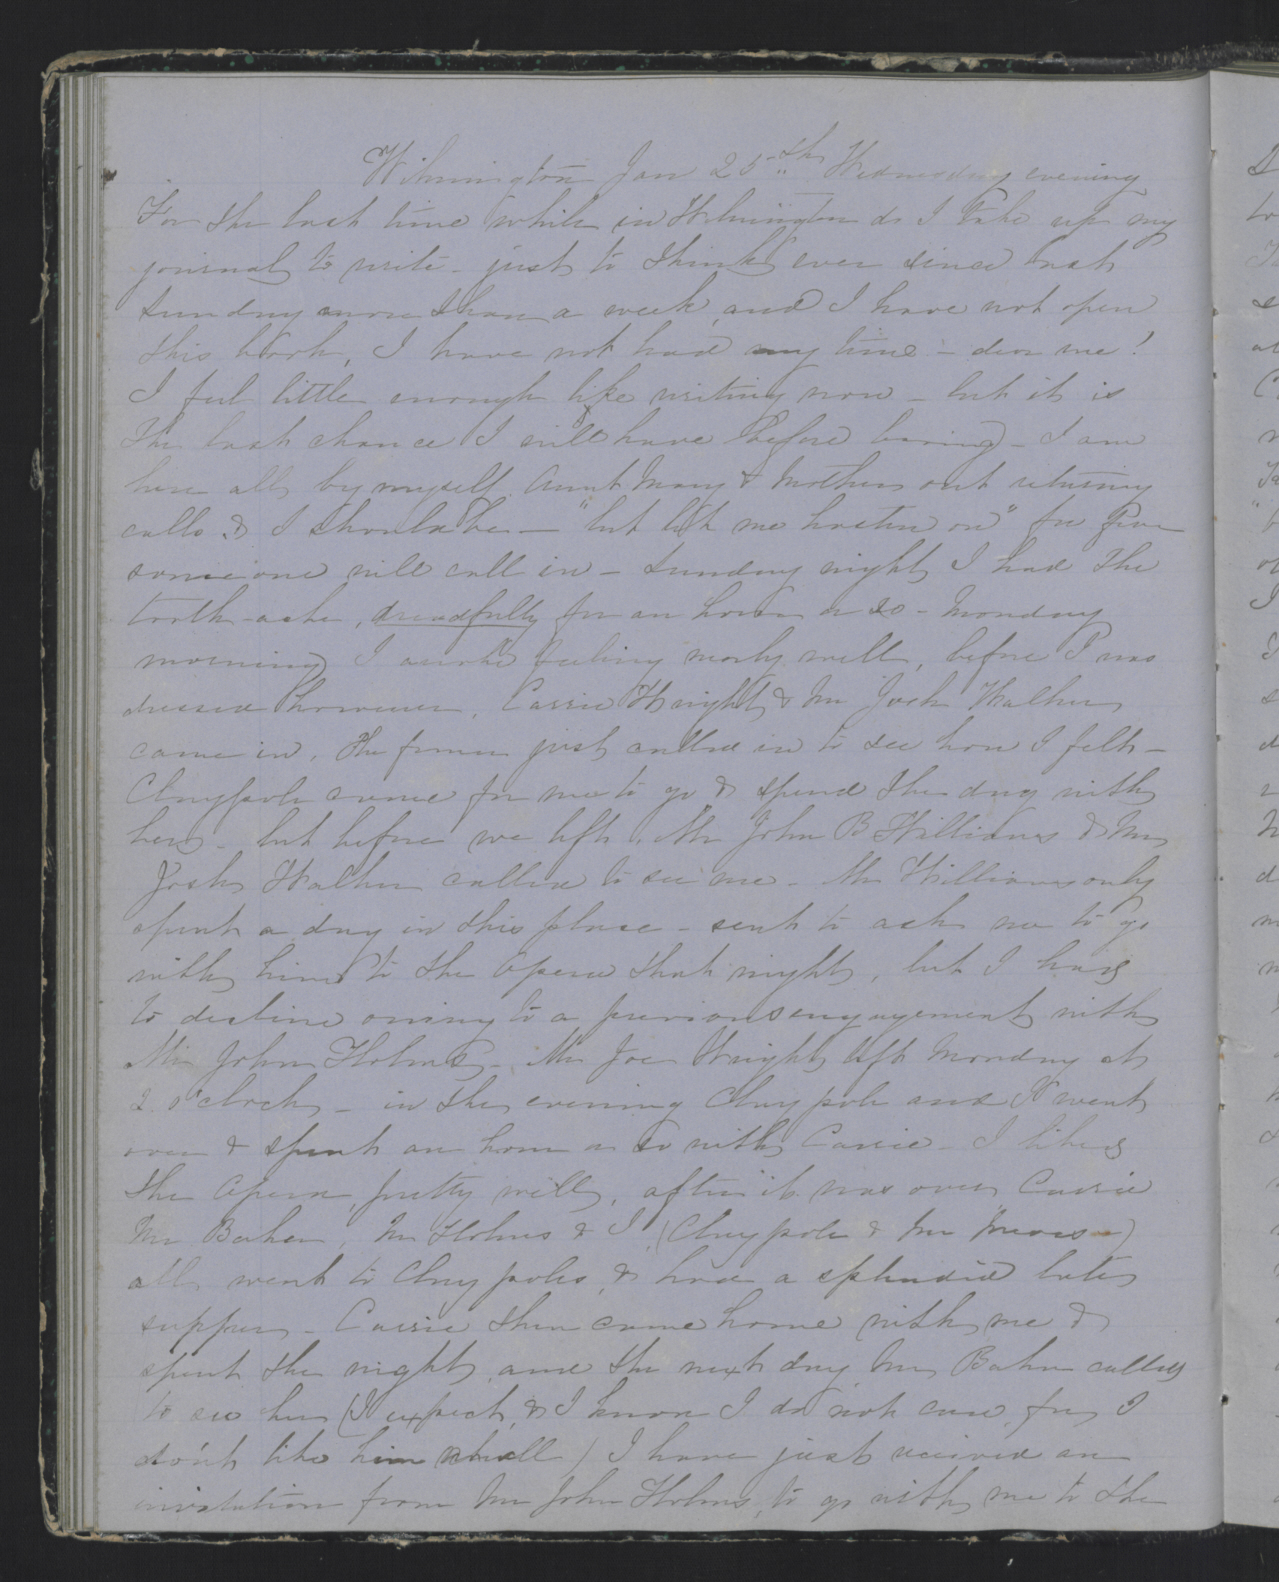 Wilmington Jan 25th Wednesday evening
For the last time while in Wilmington do I take up my
journal to write - just to think ever since last
Sunday more than a week, and I have not open
this book, I have not had any time - dear me!
I feel little enough like writing now - but it is
the last chance I will have before leaving - I am
here all by myself Aunt Mary & Mother out returning
calls & I should be - "but let me hasten on" for fear
some one will call in - Sunday night I had the
tooth-ache, dreadfully for an hour or so - Monday
morning I awoke feeling nearly well, before I was
dressed however, Carrie Wright & Mr Josh Walker
came in, the former just called in to see how I felt -
Claypole came for me to go & spend the day with
her - but before we left, Mr John B Williams & Mr
Josh Walker called to see me - Mr Williams only
spent a day in this place - sent to ask me to go
with him to the Opera that night, but I had
to decline owing to a previous engagement with
Mr John Holmes - Mr Joe Wright left Monday at
2 o'clock - in the evening Claypole and I went
over & spent an hour or so with Carrie - I liked
the Opera pretty well, after it was over Carrie
Mr Baker, Mr Holmes & I (Claypole & Mr Meares)
all went to Claypoles, & had a splendid late
supper - Carrie then came home with me &
spent the night, and the next day Mr Baker called
to see her (I expect, & I know I do not care, for I
don't like him at all) I have just received an
invitation from Mr John Holmes, to go with me to the